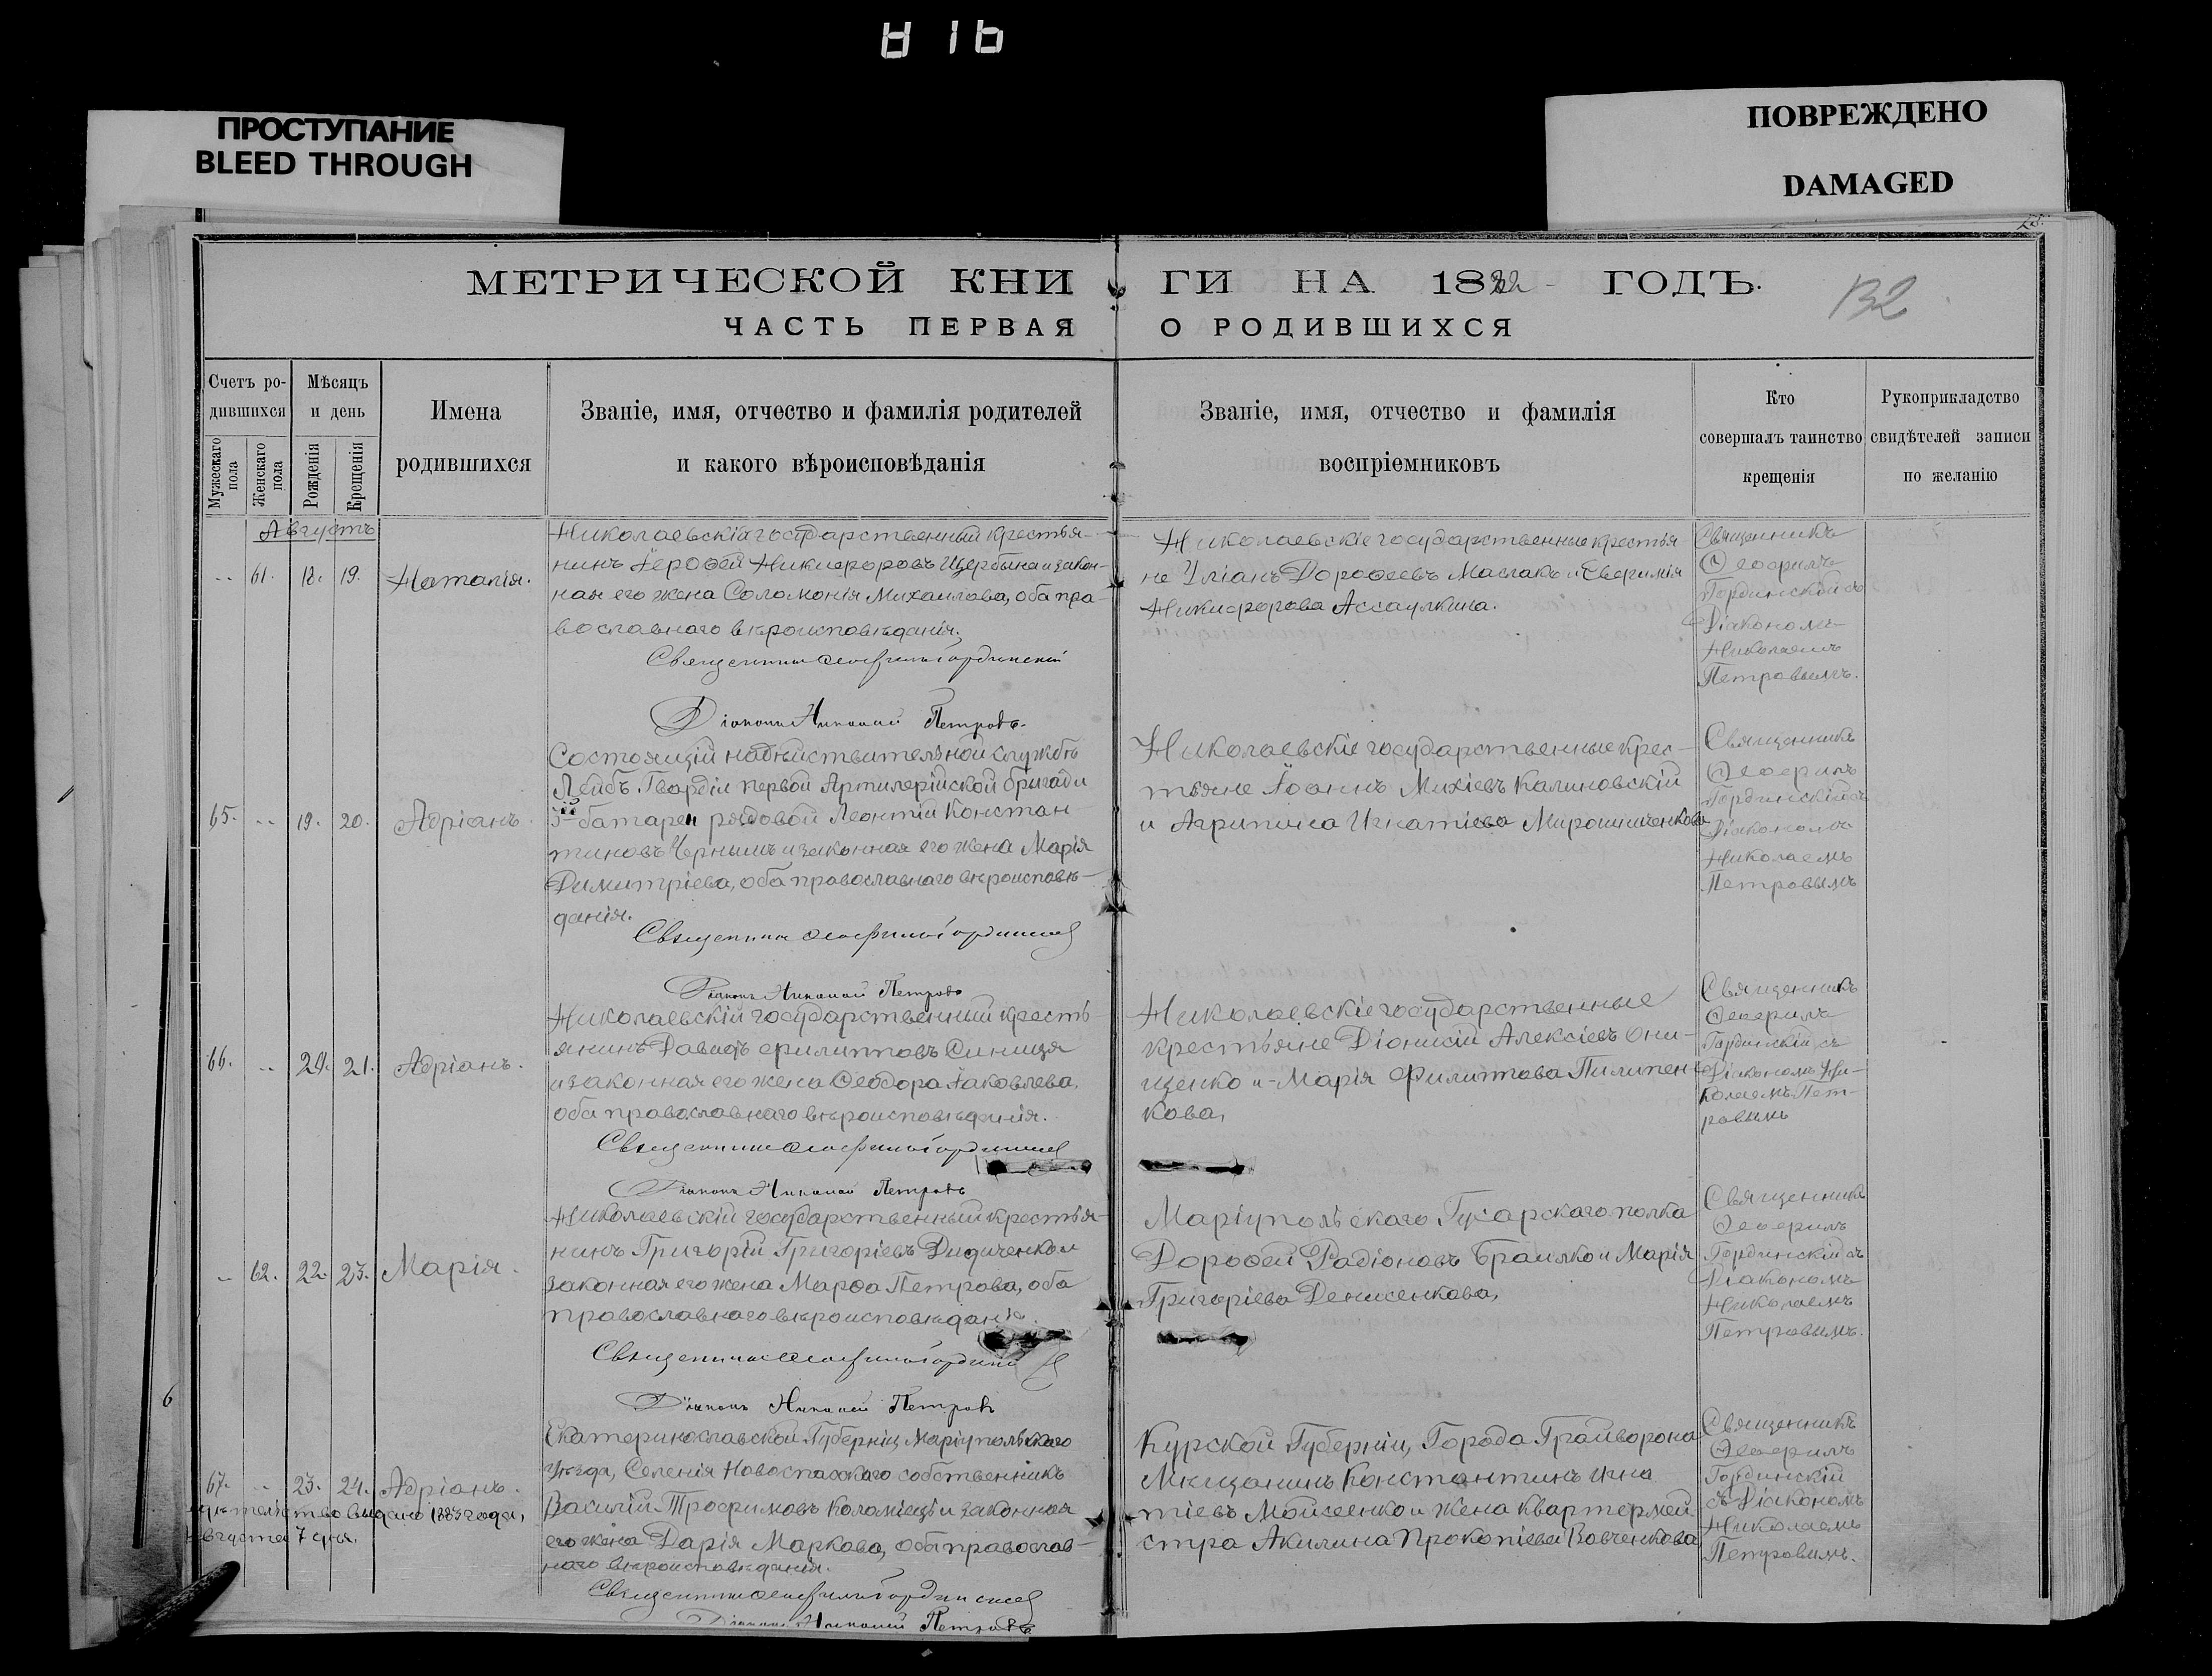 ПРОСТУПАНИЕ
BLEED THROUGH
ПОВРЕЖДЕНО
DAMAGED
МЕТРИЧЕСКОЙ КНИГИ НА 1882 ГОДЪ.
132
ЧАСТЬ ПЕРВАЯ О РОДИВШИХСЯ
Счетъ ро-
дившихся
Мужескаго пола
Женскаго пола
Мѣсяцъ
и день
Рожденія
Крещенія
Имена
родившихся
Званіе, имя, отчество и фамилія родителей
и какого вѣроисповѣданія
Званіе, имя, отчество и фамилія
воспріемниковъ
Кто
совершалъ таинство
крещенія
Рукоприкладство
свидѣтелей записи
по желанію
Августъ
61. 18. 19. Наталія.
Николаевскій государственный крестья-
нинъ Іерофей Никифоровъ Щербына и закон-
ная его жена Соломонія Михаилова, оба пра-
вославнаго вѣроисповѣданія.
Священникъ Ѳеофилъ Гординскій
Діаконъ Николай Петровъ.
Николаевскіе государственные крестья
не Уліанъ Дорофеевъ Маслакъ и Евфимія
Никифорова Ассаулкина.
Священникъ
Ѳеофилъ
Гординскій съ
Діакономъ
Николаемъ
Петровымъ.
65. 19. 20. Адріанъ.
Состоящій на дѣйствительной службѣ
Лейбъ Гвардіи первой Артилерійской бригади
батареи рядовой Леонтій Констан
тиновъ Чернышъ и законная его жена Марія
Димитріева, оба православнаго вѣроисповѣ-
данія.
Священникъ Ѳеофилъ Гординскій
Діаконъ Николай Петровъ
Николаевскіе государственные крес-
тьяне Іоаннъ Михіевъ Калиновскій
и Агрипина Игнатіева Мирошниченкова
Священникъ
Ѳеофилъ
Гординскій съ
Діакономъ
Николаемъ
Петровымъ
66. 20. 21. Адріанъ.
Николаевскій государственный кресть-
янинъ Давидъ Филипповъ Синиця
и законная его жена Ѳеодора Іаковлева,
оба православнаго вѣроисповѣданія.
Священникъ Ѳеофилъ Гординскій
Діаконъ Николай Петровъ
Николаевскіе государственные
крестьяне Діонисій Алексіевъ Они-
щенко и Марія Филиппова Пилипен-
кова,
Священникъ
Ѳеофилъ
Гординскій съ
Діакономъ Ни-
колаемъ Пет-
ровымъ
62. 22. 23. Марія.
Николаевскій государственный крестья-
нинъ Григорій Григоріевъ Дидиченко и
законная его жена Марѳа Петрова, оба
православнаго вѣроисповѣданія.
Священникъ Ѳеофилъ Гординскій
Діаконъ Николай Петровъ
Маріупольскаго Гусарскаго полка
Дорофей Радіоновъ Браилко и Марія
Григоріева Денисенкова,
Священникъ
Ѳеофилъ
Гординскій съ
Діакономъ
Николаемъ
Петровымъ.
67. 23. 24. Адріанъ.
выдано 1883 года,
Августа 7 дня.
Екатеринославской Губерніи Маріупольскаго
Уѣзда, Селенія Новоспасскаго собственникъ
Василій Трофимовъ Коломіецъ и законная
его жена Дарія Маркова, оба православ-
наго вѣроисповѣданія.
Священникъ Ѳеофилъ Гординскій
Діаконъ Николай Петровъ
Курской Губерніи, Города Грайворона
Мѣщанинъ Константинъ Игна
тіевъ Мойсеенко и жена квартермей
стра Акилина Прокопіева Вовченкова
Священникъ
Ѳеофилъ
Гординскій
съ Діакономъ
Николаемъ
Петровымъ.